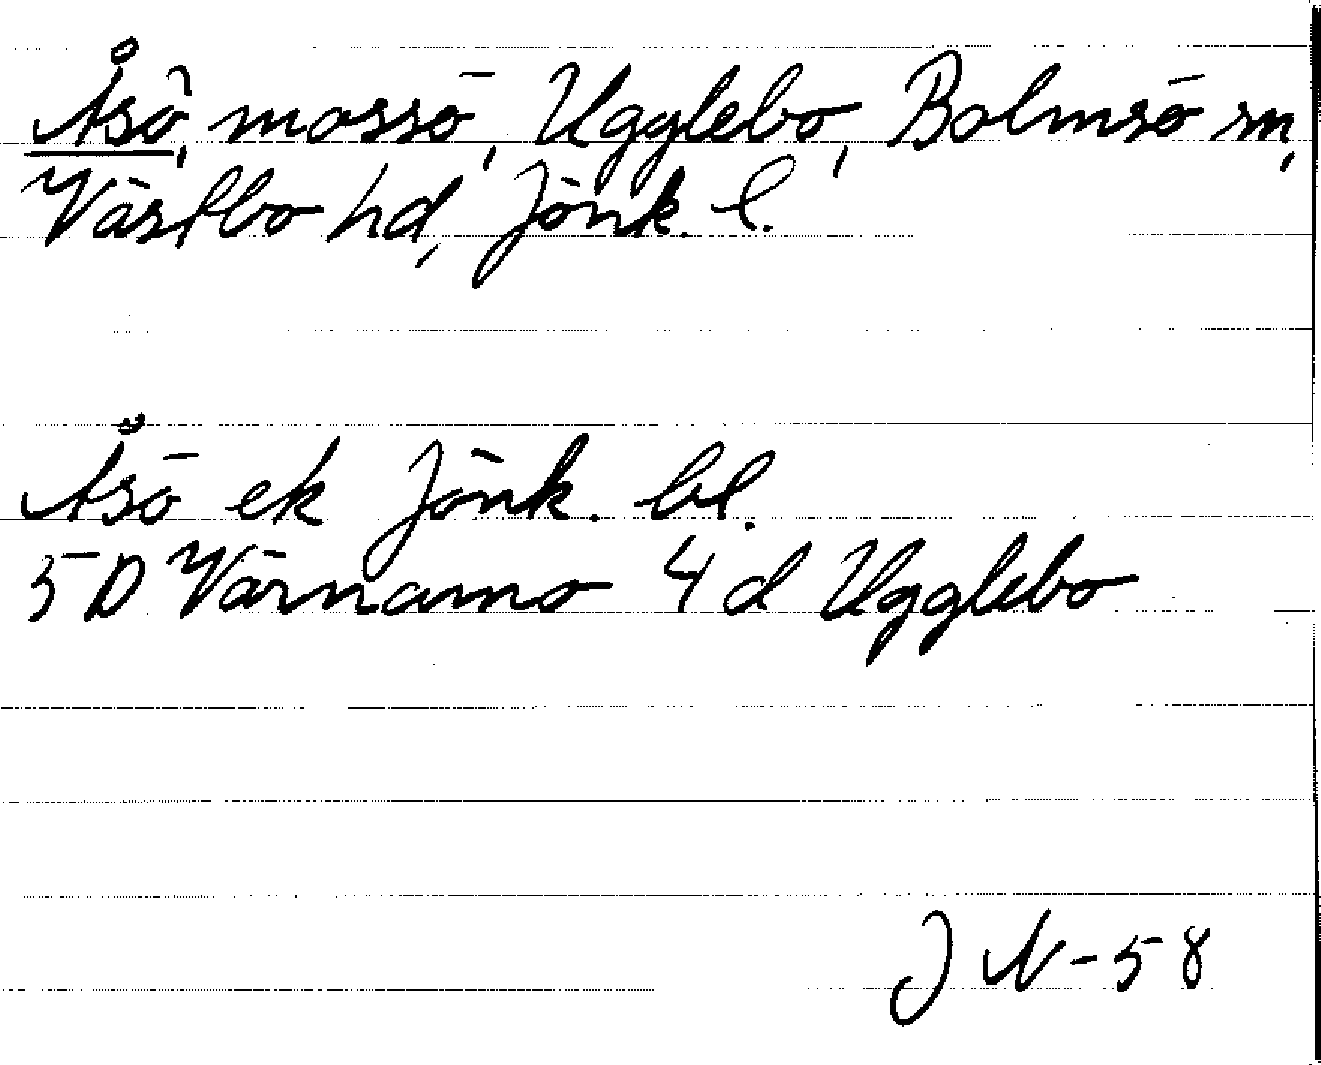 Åsö, mossö, Ugglebo, Bolmsö sn,
Västbo hd, Jönk. l.
Åsö ek Jönk. bl.
5D Värnamo 4d Ugglebo
J N-58